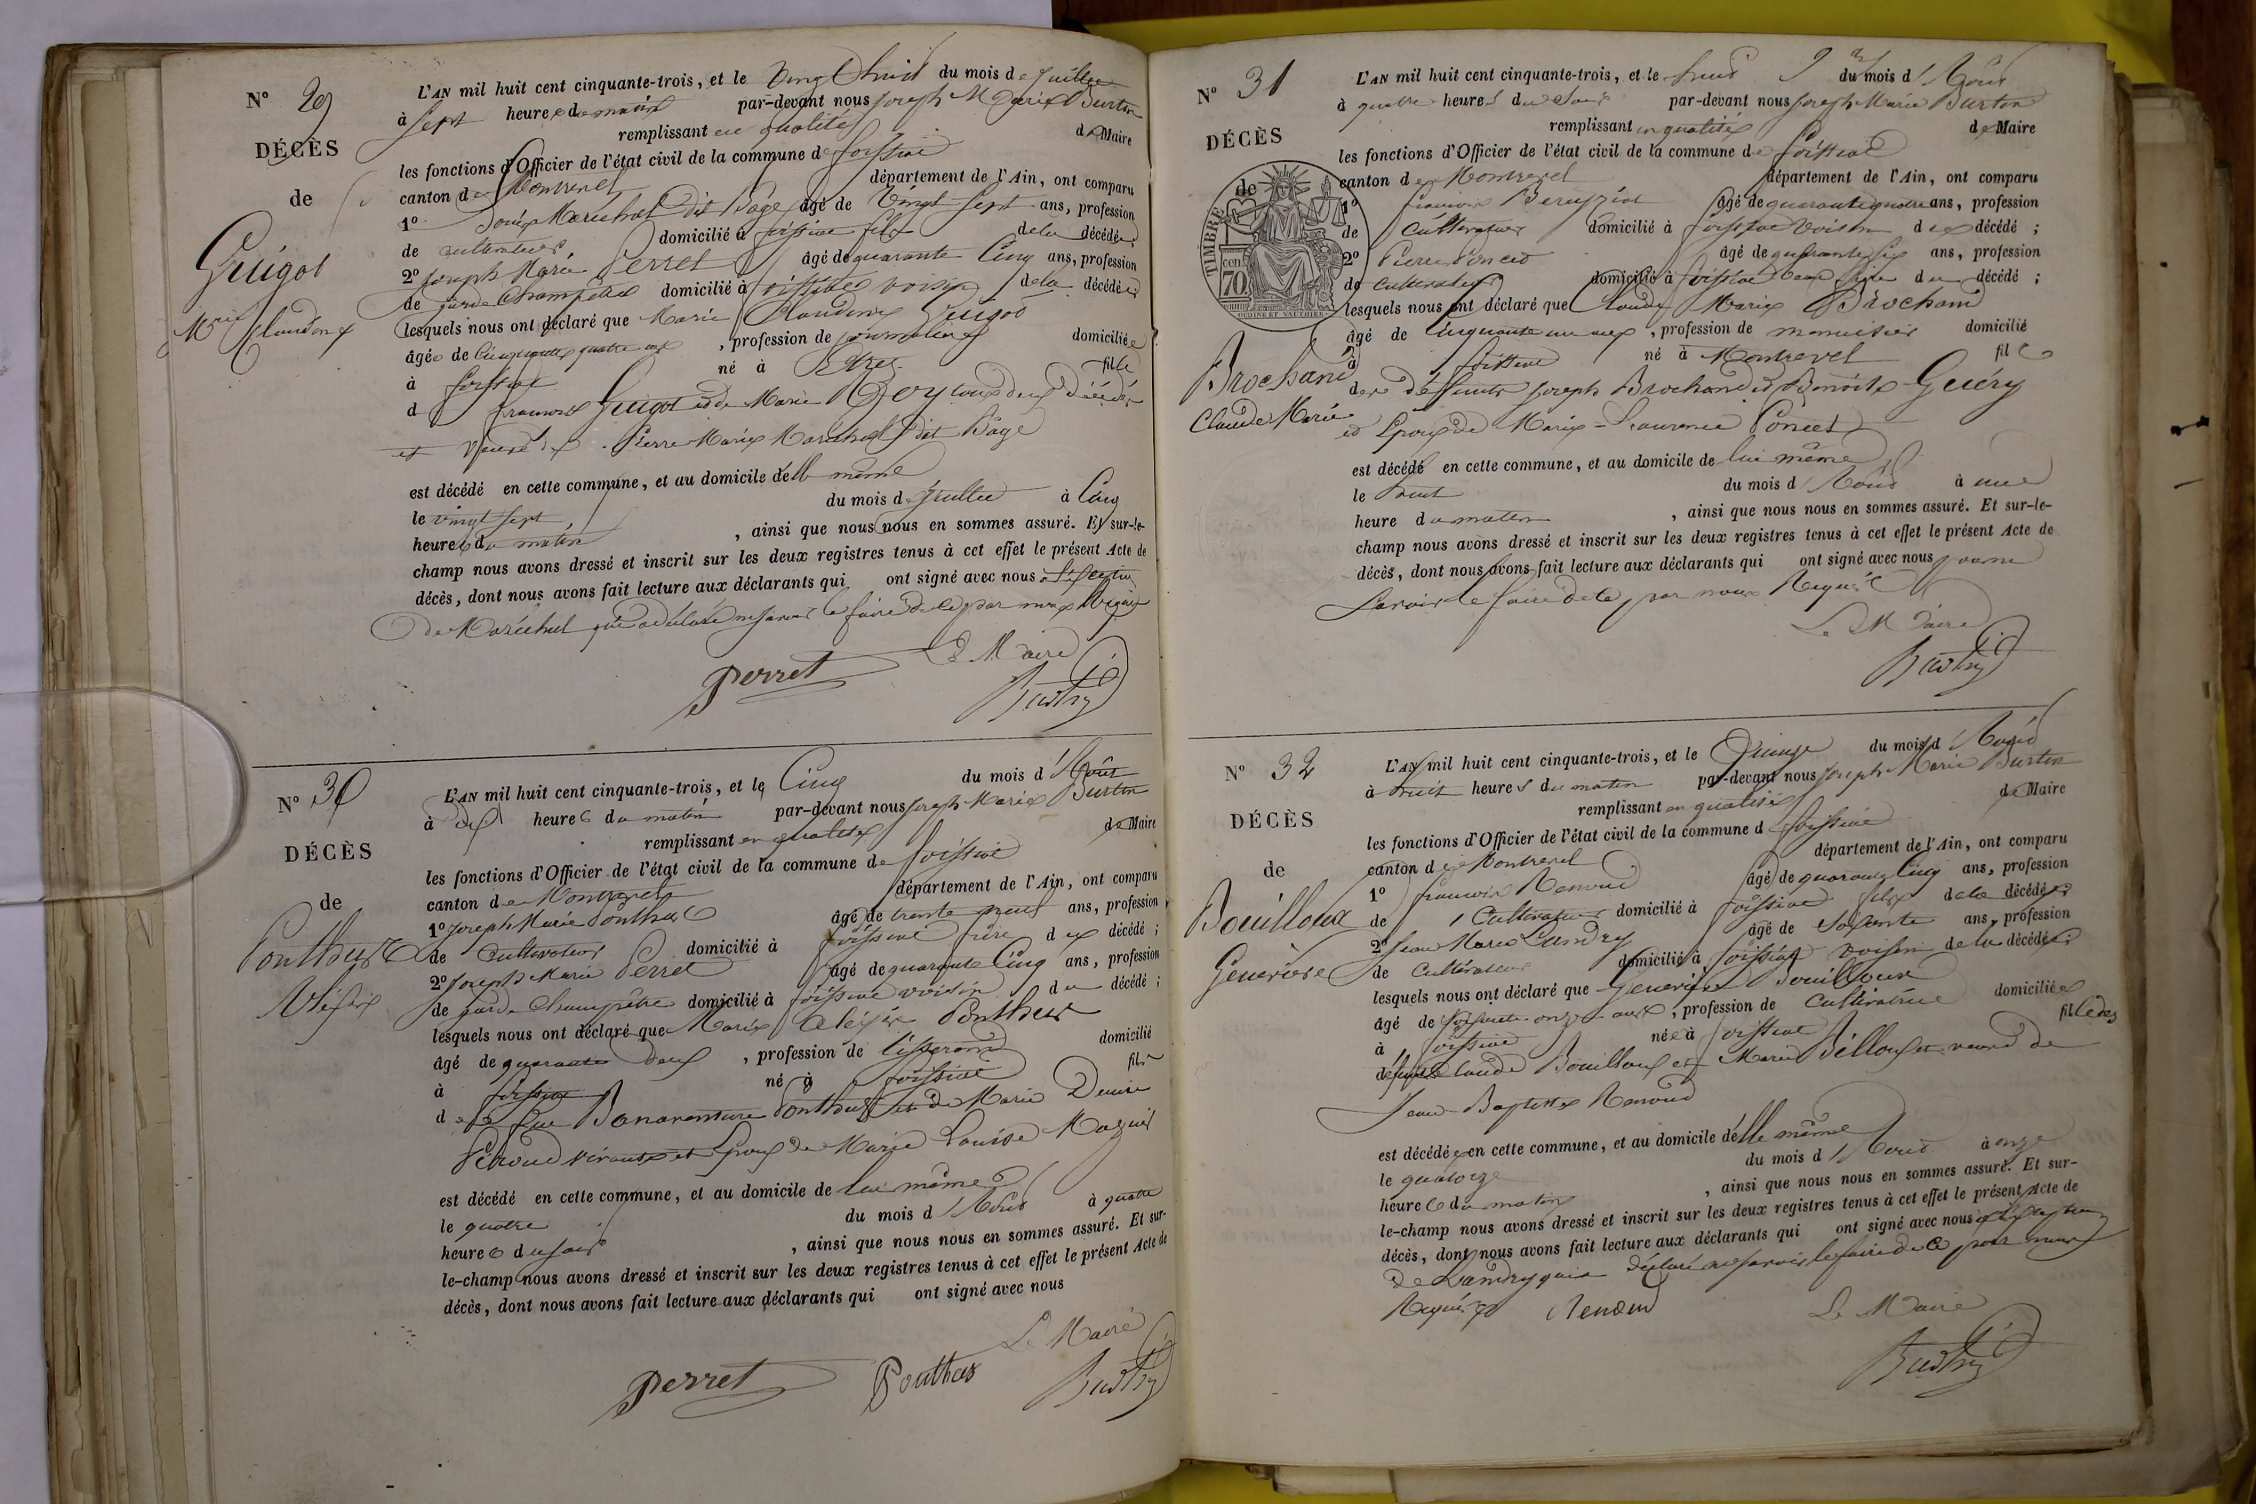 N° 29
DÉCÈS
de
Guigot
Mrie Claudine
L'AN mil huit cent cinquante-trois, et le vingt huit du mois de Juillet
à sept heures du matin par-devant nous Joseph Marie Burtin
remplissant en qualité de Maire
les fonctions d'Officier de l'état civil de la commune de foissiat
canton de Montrevel département de l'Ain, ont comparu
1° Maréchal dit Bagé âgé de vingt sept ans, profession
de cultivateur domicilié à foissiat fils de la décédée ;
2° Joseph Marie Perret âgé de quarante cinq ans, profession
de garde champêtre domicilié à foissiat voisin de la décédée
lesquels nous ont déclaré que Marie Claudine Guigot
âgée de cinquante quatre ans , profession de journalière domiciliée
à foissiat né à fille
d françois Guigot et de Marie Roy tous deux décédés
et veuve de Pierre Marie Maréchal dit Bagé
est décédé en cette commune, et au domicile d'elle même
le vingt sept du mois de Juillet à cinq
heures du matin , ainsi que nous nous en sommes assuré. Et sur-le-
champ nous avons dressé et inscrit sur les deux registres tenus à cet effet le présent Acte de
décès, dont nous avons fait lecture aux déclarants qui ont signé avec nous à l'exception
de Maréchal qui a déclaré ne savoir le faire de ce par nous requis
Le Maire
Perret Burtin
N° 30
DÉCÈS
de
Ponthus
Alexis
L'AN mil huit cent cinquante-trois, et le cinq du mois d'Août
à dix heures du matin par-devant nous Joseph Marie Burtin
remplissant en qualité de Maire
les fonctions d'Officier de l'état civil de la commune de foissiat
canton de Montrevel département de l'Ain, ont comparu
1° Joseph Marie Ponthus âgé de trente neuf ans, profession
de cultivateur domicilié à foissiat frère du décédé ;
2° Joseph Marie Perret âgé de quarante cinq ans, profession
de garde champêtre domicilié à foissiat voisin du décédé ;
lesquels nous ont déclaré que Marie Alexis Ponthus
âgé de quarante deux , profession de tisserand domicilié
à foissiat né à foissiat fils
de feu Bonaventure Ponthus et de Marie Denise
Péroud vivante et époux de Marie Louise Mazuir
est décédé en cette commune, et au domicile de lui même
le quatre du mois d'Août à quatre
heures du soir , ainsi que nous nous en sommes assuré. Et sur-
le-champ nous avons dressé et inscrit sur les deux registres tenus à cet effet le présent Acte de
décès, dont nous avons fait lecture aux déclarants qui ont signé avec nous
Le Maire
Perret Ponthus Burtin
N° 31
DÉCÈS
de
TIMBRE
cen 70
Brochand
Claude Marie
L'AN mil huit cent cinquante-trois, et le huit du mois d'Août
à quatre heures du soir par-devant nous Joseph Marie Burtin
remplissant en qualité de Maire
les fonctions d'Officier de l'état civil de la commune de foissiat
canton de Montrevel département de l'Ain, ont comparu
1° françois âgé de quarante quatre ans, profession
de cultivateur domicilié à foissiat voisin du décédé ;
2° Pierre Poncet âgé de quarante six ans, profession
de cultivateur domicilié à foissiat beau frère du décédé ;
lesquels nous ont déclaré que Claude Marie Brochand
âgé de cinquante un ans , profession de menuisier domicilié
à foissiat né à Montrevel fils
des défunts Joseph Brochand et Benoite Guéry
et époux de Marie-Laurence Poncet
est décédé en cette commune, et au domicile de lui même
le huit du mois d'Août à une
heure du matin , ainsi que nous nous en sommes assuré. Et sur-le-
champ nous avons dressé et inscrit sur les deux registres tenus à cet effet le présent Acte de
décès, dont nous avons fait lecture aux déclarants qui ont signé avec nous pour ne
savoir le faire de ce par nous requis
Le Maire
Burtin
N° 32
DÉCÈS
de
Bouilloux
Geneviève
L'AN mil huit cent cinquante-trois, et le quinze du mois d'Août
à huit heures du matin par-devant nous Joseph Marie Burtin
remplissant en qualité de Maire
les fonctions d'Officier de l'état civil de la commune d foissiat
canton de Montrevel département de l'Ain, ont comparu
1° françois Renoud âgé de quarante cinq ans, profession
de cultivateur domicilié à foissiat fils de la décédée
2° Jean Marie Landry âgé de soixante ans, profession
de cultivateur domicilié à foissiat voisin de la décédée
lesquels nous ont déclaré que Geneviève Bouilloux
âgé de soixante-onze ans , profession de cultivatrice domiciliée
à foissiat née à foissiat fille des
défunts Claude Bouilloux et Marie Billoux et veuve de
Jean-Baptiste Renoud
est décédée en cette commune, et au domicile d'elle même
le quatorze du mois d'Août à onze
heures du matin , ainsi que nous nous en sommes assuré. Et sur-
le-champ nous avons dressé et inscrit sur les deux registres tenus à cet effet le présent Acte de
décès, dont nous avons fait lecture aux déclarants qui ont signé avec nous à l'exception
de Landry qui a déclaré ne savoir le faire de ce par nous
requis Renoud Le Maire
Burtin